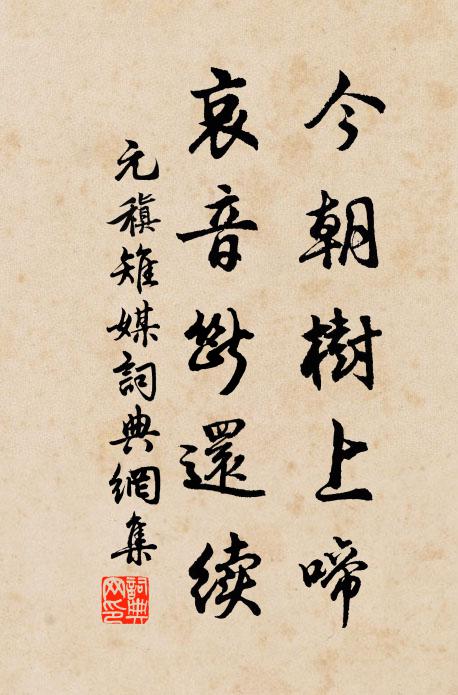 今朝樹上啼
哀音斷還續
元稹雉媒詞典網集
詞典網印